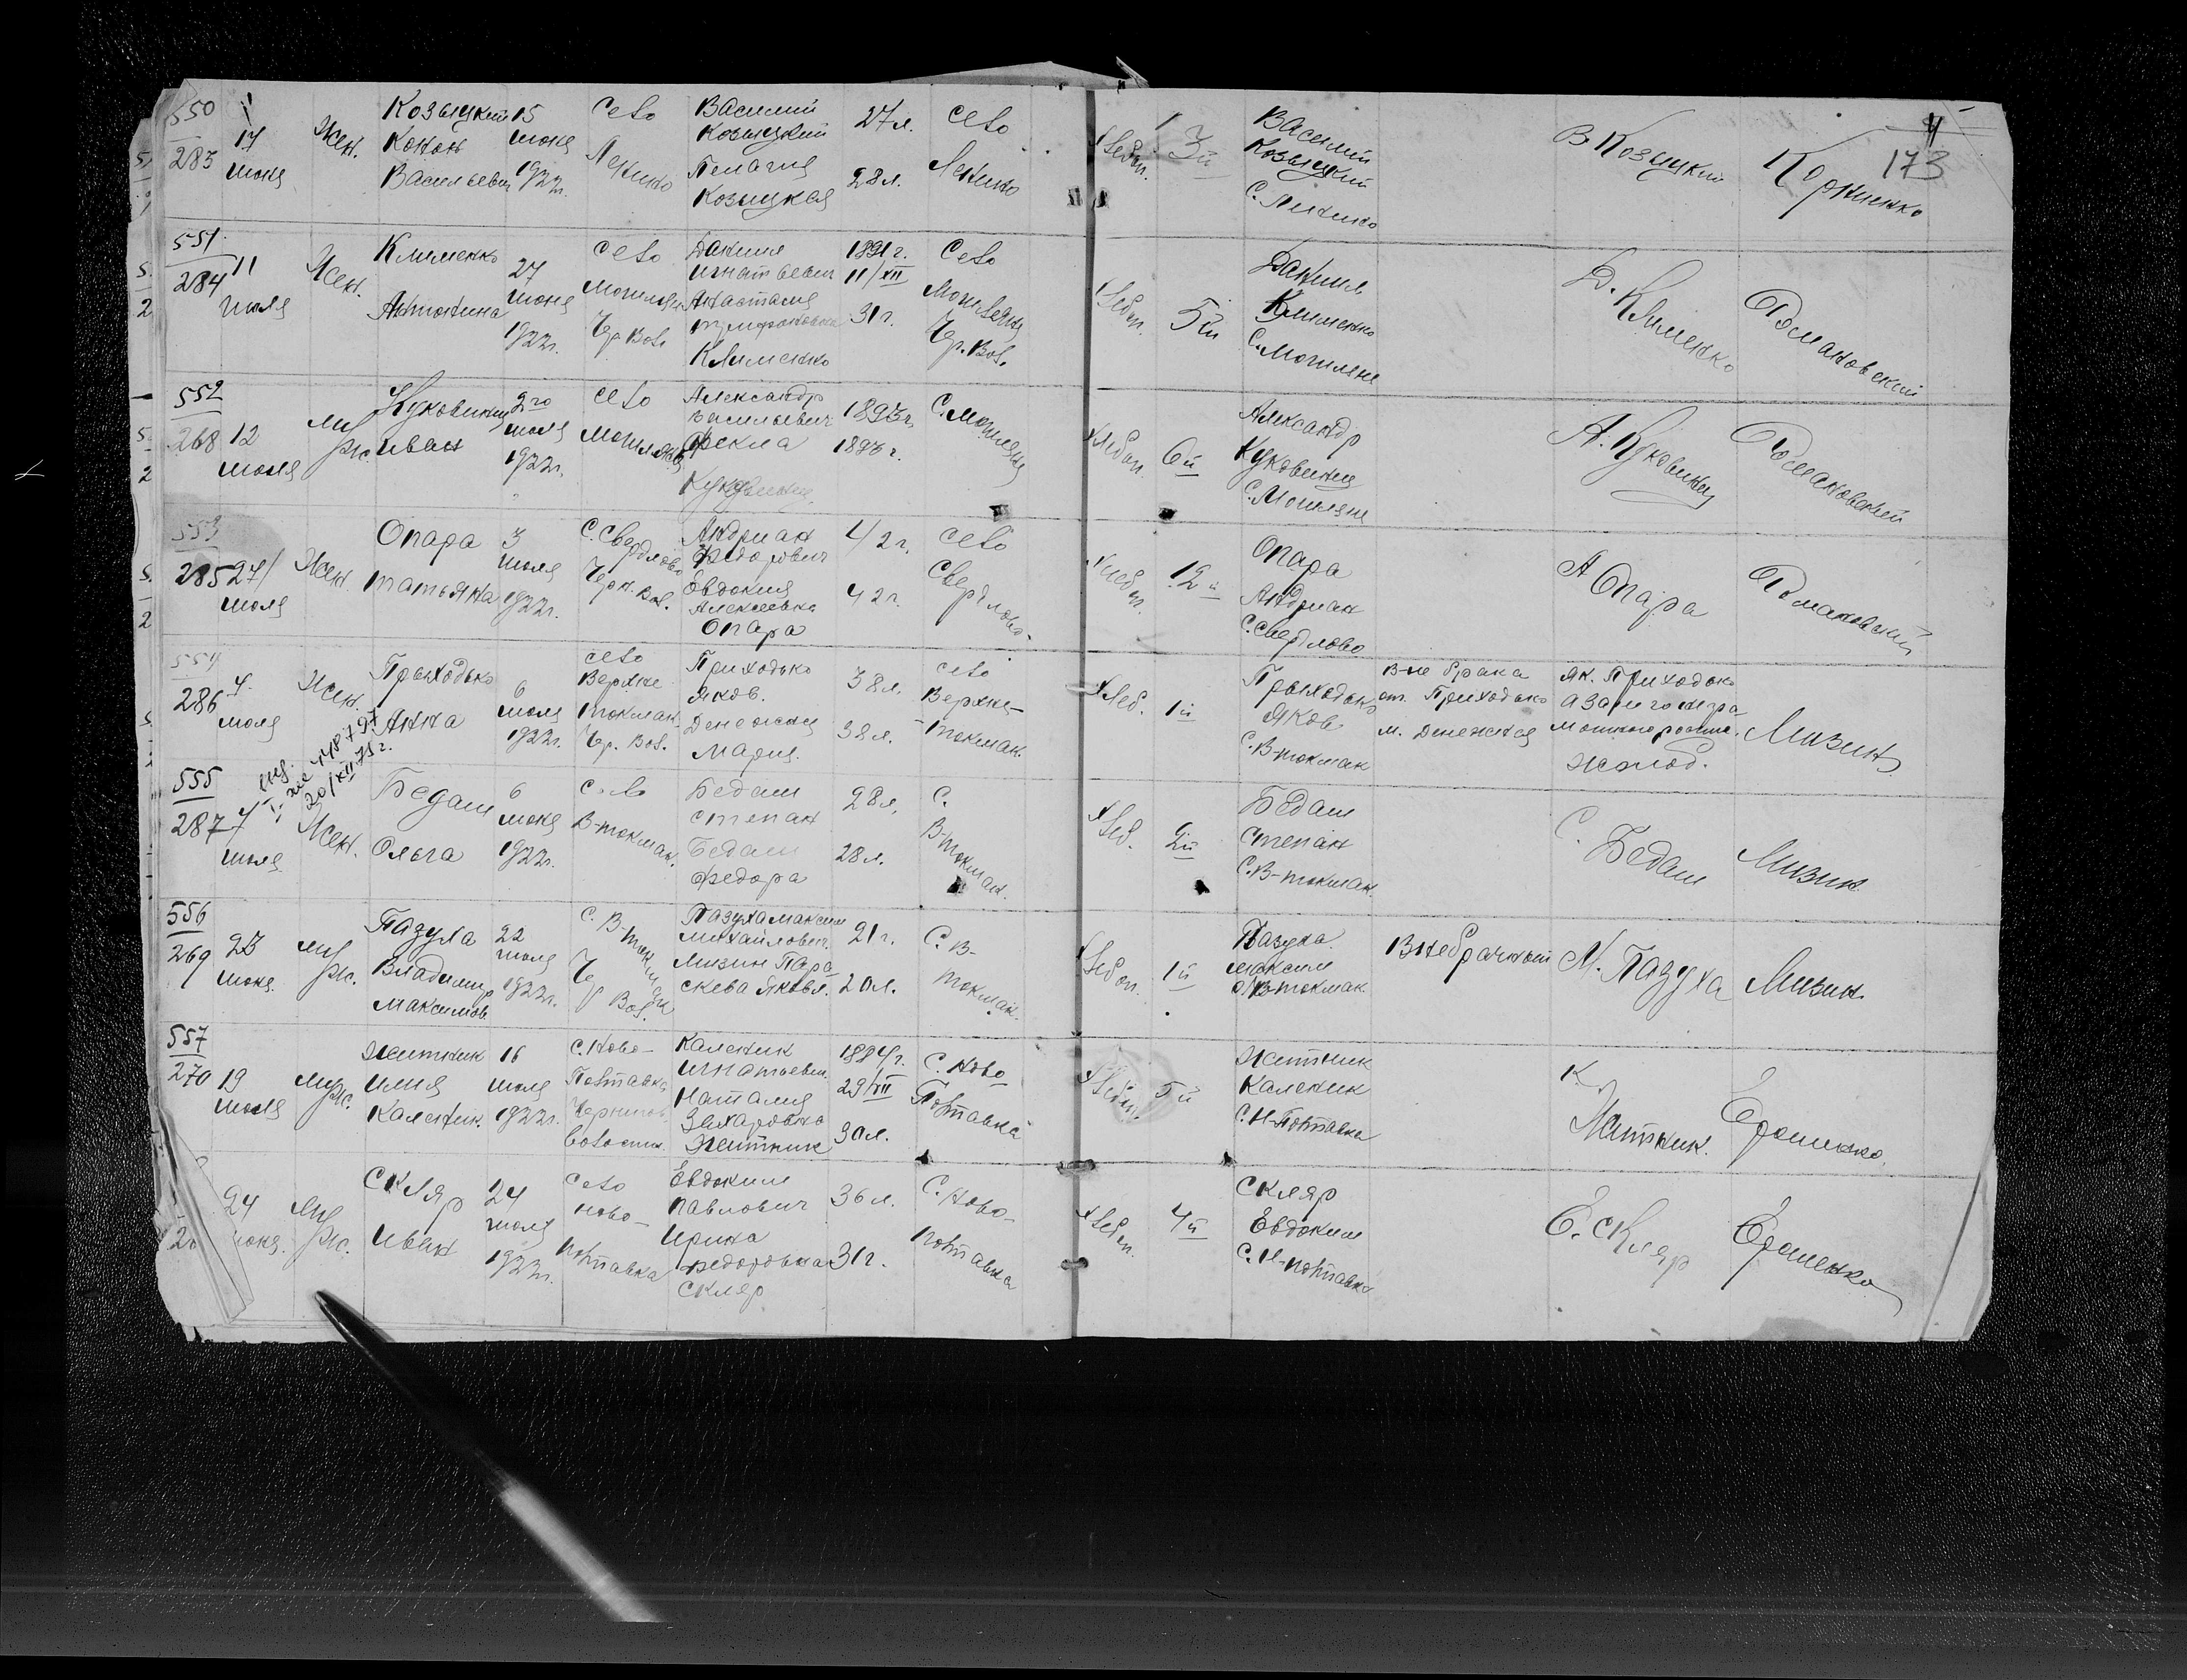 173
550
283
17 июня
Жен.
Козыцкий Конон Васильевич
15 июня 1922г.
село Ленино
Василий Козыцкий
Пелагия Козыцкая
27л.
28л.
село Ленино
Хлебоп.
3й
Василий Козыцкий с. Ленино
В Козыцкий
Корниенко
551
284
11 июля
Жен.
Клименко Антонина
27 июня 1922г.
село Могиляны Чер. вол.
Данила Игнатьевич
Анастасия
Клименко
1891г. 11/XII
31г.
село Могиляны Чер. вол.
Хлебоп.
5й
Данила Клименко с. Могиляне
Д. Клименко
Романовский
552
268
12 июля
Муж.
Куковинец Иван
2го июля 1922г.
село Могиляны
Александр Васильевич
Фекла
Куковинец
1893г.
1893г.
с. Могиляны
Хлебоп.
6й
Александр Куковинец с. Могиляне
А. Куковинец
Романовский
553
285
27/ июля
Жен.
Опара Татьяна
3 июля 1922г.
с. Свердлово Черн. вол.
Андриан Федорович
Евдокия Алексеевна
Опара
42г.
42г.
село Свердлово
Хлебоп.
12й
Опара Андриан с. Свердлово
А Опара
Романовский
554
286
7 июля
Жен.
Приходько Анна
6 июля 1922г.
село Верхне Токмак. Чер. вол.
Приходько Яков.
Денежная Мария.
38л.
38л.
село Верхне-Токмак.
Хлеб.
1й
Приходько Яков с. В-токмак
В-не брака от. Приходько м. Денежная
Як. Приходько а за него негра-
мотного распис.
Мизин
555
20/XII 75г.
287
7 июля
Жен.
Бедаш Ольга
6 июня 1922г.
с. В-токмак.
Бедаш Степан
Бедаш Федора
28л.
28л.
с. В-токмак.
Хлеб.
2й
Бедаш Степан с. В-токмак.
С. Бедаш
Мизин
556
269
23 июня
Муж.
Пазуха Владимир Максимов
22 июля 1922г.
с. В-токмак Чер. вол.
Пазуха Максим Михайлович
Мизин Параскева Яковл.
21г.
20л.
с. В-токмак.
Хлебоп.
1й
Пазуха Максим с. В-токмак
Внебрачный
М. Пазуха
Мизин
557
270
19 июля
Муж.
Житник Илия Каленик.
16 июля 1922г.
с. Ново-Полтавка Чернигов. волости.
Каленик Игнатьевич
Наталия Захаровна
Житник
1894г. 29/XII
30л.
с. Ново Полтавка
Хлебоп.
5й
Житник Каленик с. Н-Полтавка
К Житник.
Ерошенко
24 июня.
Муж.
Скляр Иван
24 июля 1922г.
село Ново-Полтавка
Евдоким Павлович
Ирина Федоровна
Скляр
36л.
31г.
с. Ново-Полтавка
Хлебоп.
4й
Скляр Евдоким с. Н-Полтавка
Е. Скляр
Ерошенко